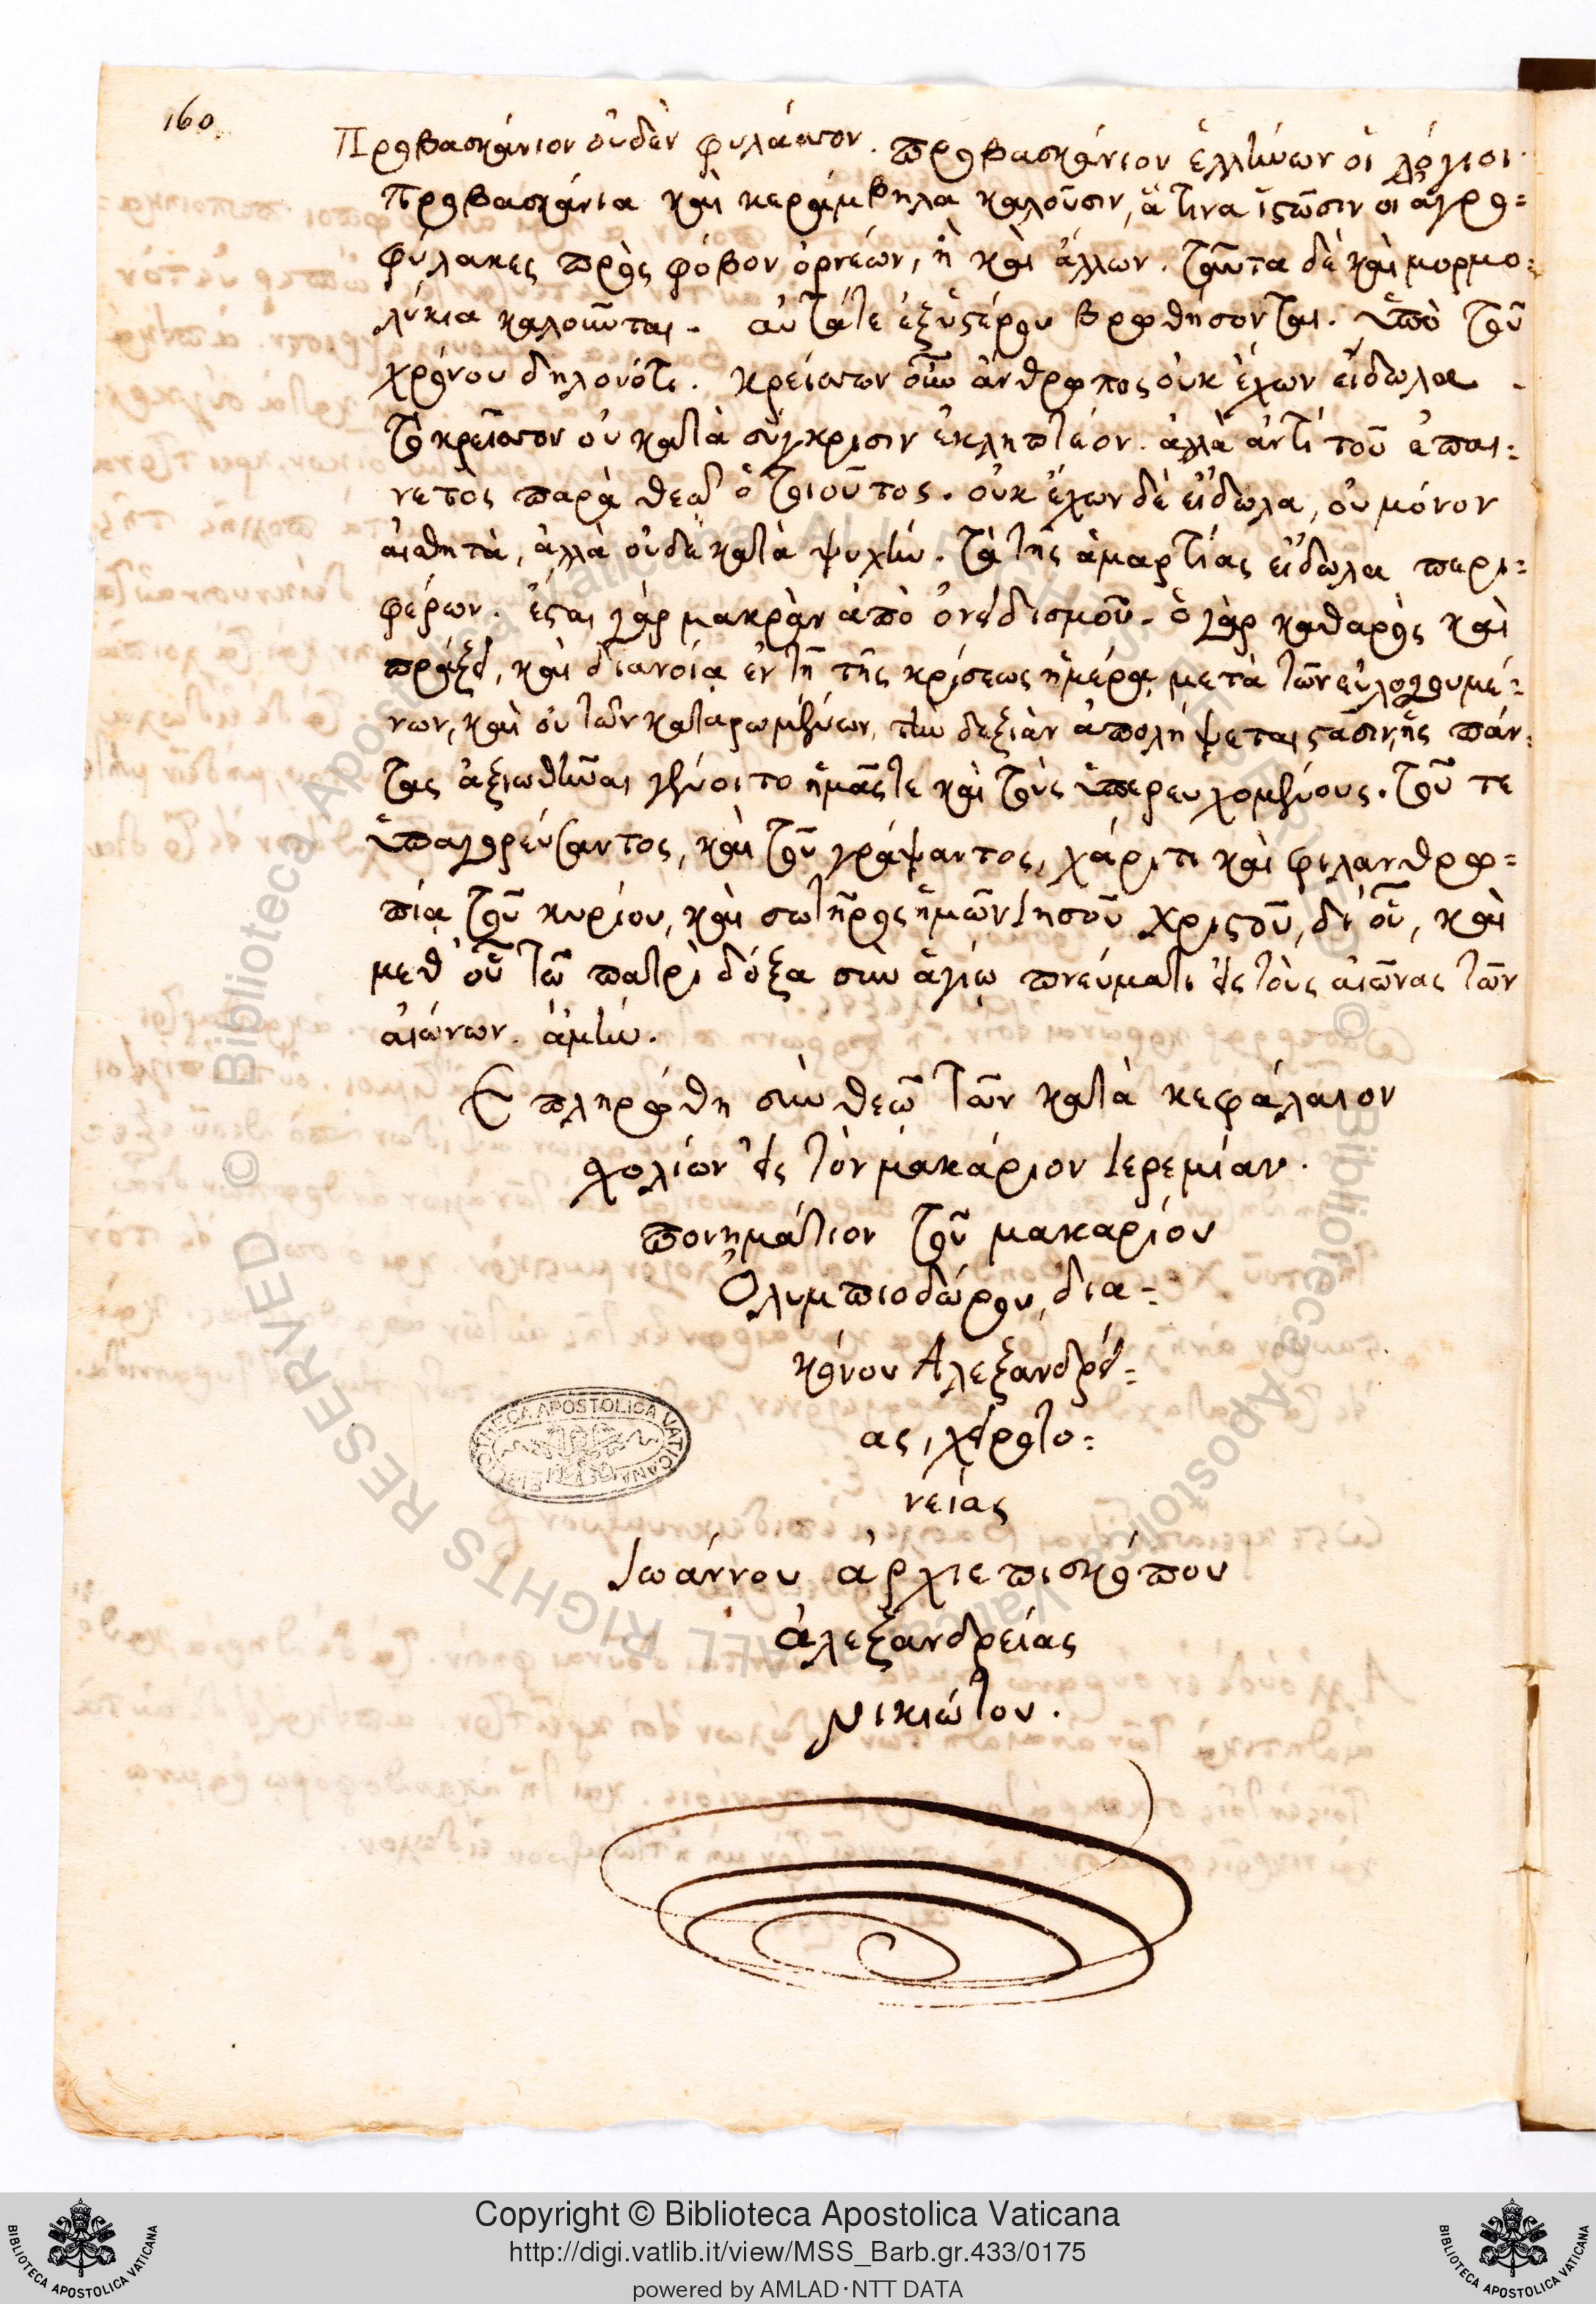 160
Προβασκάνιον οὐδὲν φυλάσσον. προβασκάνιον ἑλλήνων οἱ λόγιοι
Προβασκάνια καὶ κεράμβηλα καλοῦσιν, ἅτινα ἱστῶσιν οἱ ἀγρο=
φύλακες πρὸς φόβον ὀρνέων, ἢ καὶ ἄλλων. ταῦτα δὲ καὶ μορμο=
λύκια καλοῦνται. αὐτά τε ἐξ ὑστέρου βρωθήσονται. ὑπὸ τοῦ
χρόνου δηλονότι. κρείσσων οὖν ἄνθρωπος οὐκ ἔχων εἴδωλα.
τὸ κρεῖσσον οὐ κατὰ σύγκρισιν ἐκληπτέον. ἀλλὰ ἀντὶ τοῦ ἐπαι=
νετὸς παρὰ θεῶ ὁ τοιοῦτος. οὐκ ἔχων δὲ εἴδωλα, οὐ μόνον
αἰσθητὰ, ἀλλὰ οὐδὲ κατὰ ψυχὴν. τὰ τῆς ἁμαρτίας εἴδωλα περι=
φέρων. ἔσται γὰρ μακρὰν ἀπὸ ὀνειδισμοῦ. ὁ γὰρ καθαρὸς καὶ
πράξει, καὶ διανοίᾳ ἐν τῇ τῆς κρίσεως ἡμέρᾳ μετὰ τῶν εὐλογουμέ=
νων, καὶ οὐ τῶν καταρωμένων, τὴν δεξιὰν ἀπολήψεται στάσιν, ἧς πάν=
τας ἀξιωθῆναι γένοιτο ἡμᾶς τε καὶ τοὺς ὑπερευχομένους. τοῦ τε
ὑπαγορεύσαντος, καὶ τοῦ γράψαντος, χάριτι καὶ φιλανθρω=
πίᾳ τοῦ κυρίου, καὶ σωτῆρος ἡμῶν Ἰησοῦ χριστοῦ, δι' οὗ, καὶ
μεθ' οὗ τῶ πατρὶ δόξα σὺν ἁγίῳ πνεύματι εἰς τοὺς αἰῶνας τῶν
αἰώνων. ἀμὴν.
Ἐπληρώθη σὺν θεῶ τῶν κατὰ κεφάλαιον
σχολίων εἰς τὸν μακάριον Ἱερεμίαν.
πονημάτιον τοῦ μακαρίου
Ὀλυμπιοδώρου, δια=
κόνου Ἀλεξανδρεί=
ας, χειροτο=
νείας
Ἰωάννου ἀρχιεπισκόπου
ἀλεξανδρείας
Νικιώτου.
Copyright © Biblioteca Apostolica Vaticana
http://digi.vatlib.it/view/MSS_Barb.gr.433/0175
powered by AMLAD·NTT DATA
BIBLIOTECA APOSTOLICA VATICANA
BIBLIOTECA APOSTOLICA VATICANA
© Biblioteca Apostolica Vaticana ALL RIGHTS RESERVED